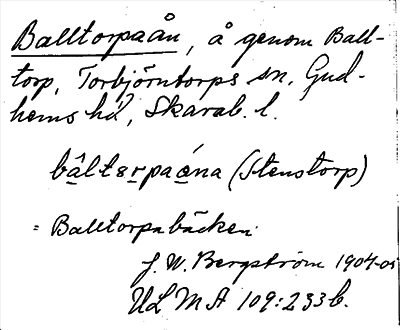 Balltorpaån, å genom Ball-
torp, Torbjörntorps sn, Gud-
hems hd, Skarab. l.
bâltsrpaéna (Stenstorp)
= Balltorpabäcken.
J. W. Bergström 1904-05
ULMA 109:233b.